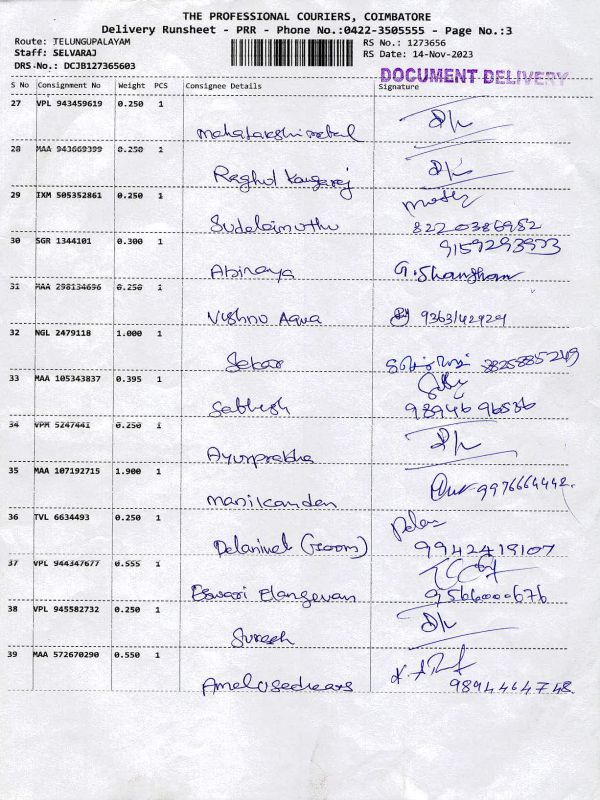 THE PROFESSIONAL COURIERS, COIMBATORE
Delivery Runsheet - PRR - Phone No.:0422-3505555 - Page No.:3
Route: TELUNGUPALAYAM
Staff: SELVARAJ
DRS-No.: DCJB127365603
RS No.: 1273656
RS Date: 14-Nov-2023
DOCUMENT DELIVERY
S No Consignment No Weight PCS Consignee Details Signature
27 VPL 943459619 0.250 1
28 MAA 943669399 0.250 1
Raghul
29 IXM 505352861 0.250 1
Sudalaimuthu 8220386952
30 SGR 1344101 0.300 1 9159293973
Abinaya G.Shangham
31 MAA 298134696 0.250 1
Vishnu Aqua 9363142924
32 NGL 2479118 1.000 1
Sekar 8825885249
33 MAA 105343837 0.395 1
Sabhesh 98946 96536
34 VPM 5247441 0.250 1
Ayurprabha
35 MAA 107192715 1.900 1
Manikanden 9976664442.
36 TVL 6634493 0.250 1
(rooms) 9942419107
37 VPL 944347677 0.555 1
Eswari Elangovan 9566000676
38 VPL 945582732 0.250 1
Suresh
39 MAA 572670290 0.550 1
9894464748.